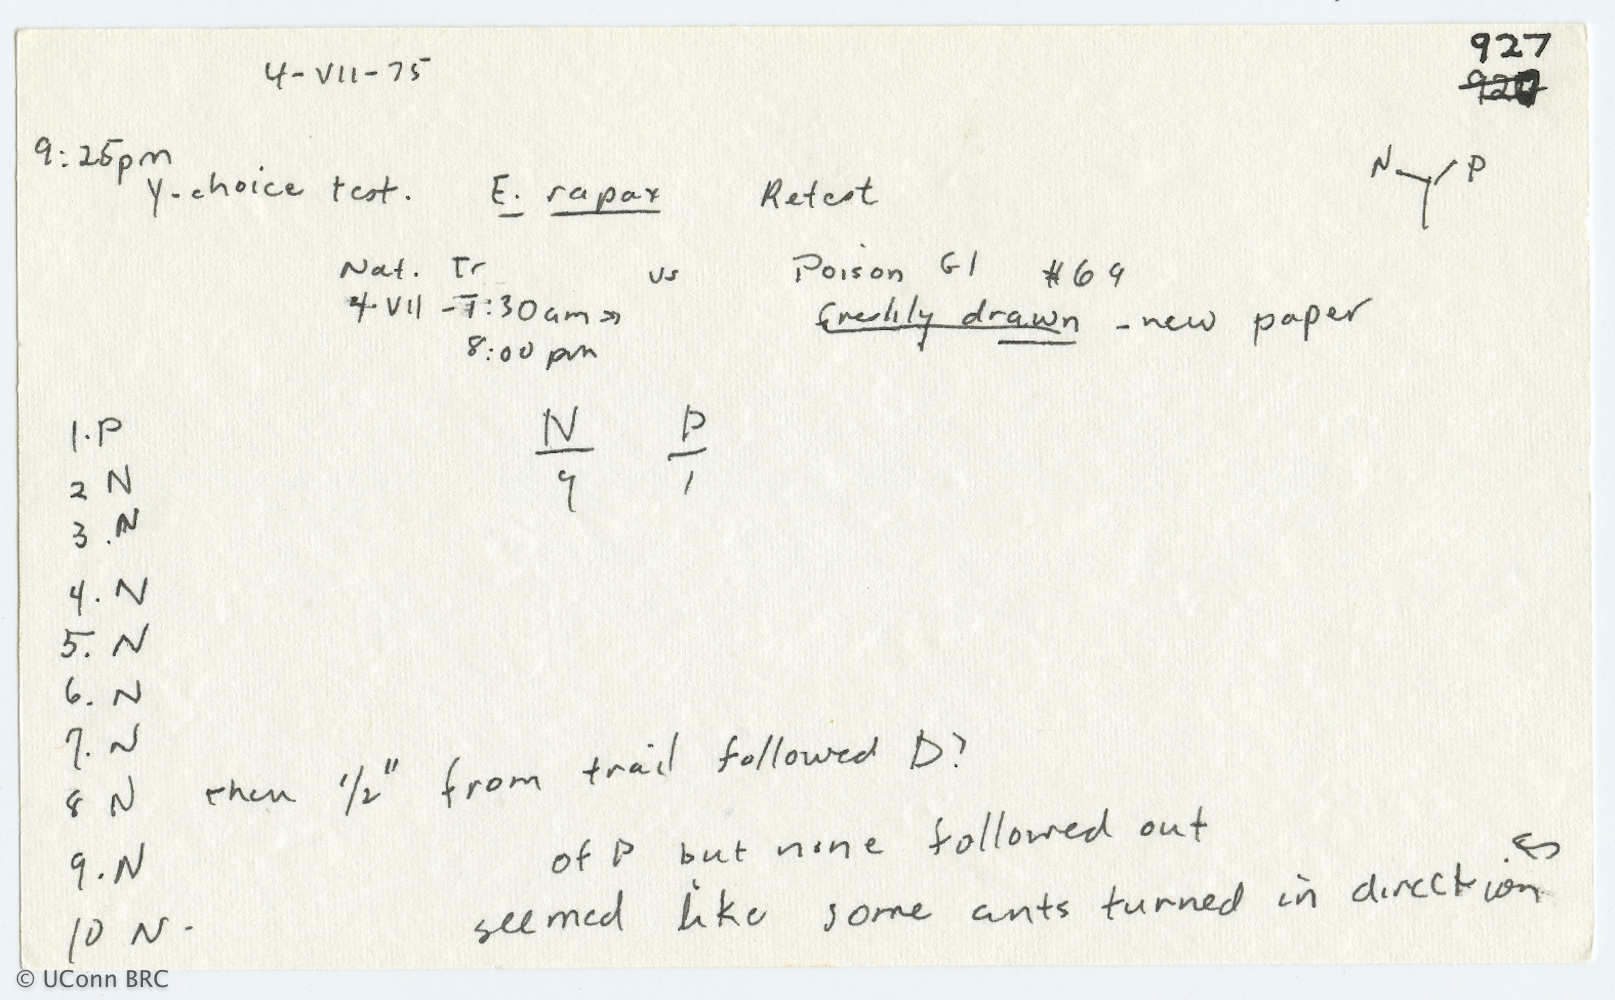 927
920
4-VII-75
9:25pm
Y-choice test. E. rapax Retest
N P
Nat. Tr vs Poison Gl #69
4-VII-7:30am→ freshly drawn - new paper
8:00 pm
N P
9 1
1. P
2 N
3. N
4. N
5. N
6. N
7. N
8 N then 1/2" from trail followed D?
9. N of P but none followed out
10 N. seemed like some ants turned in direction
© UConn BRC